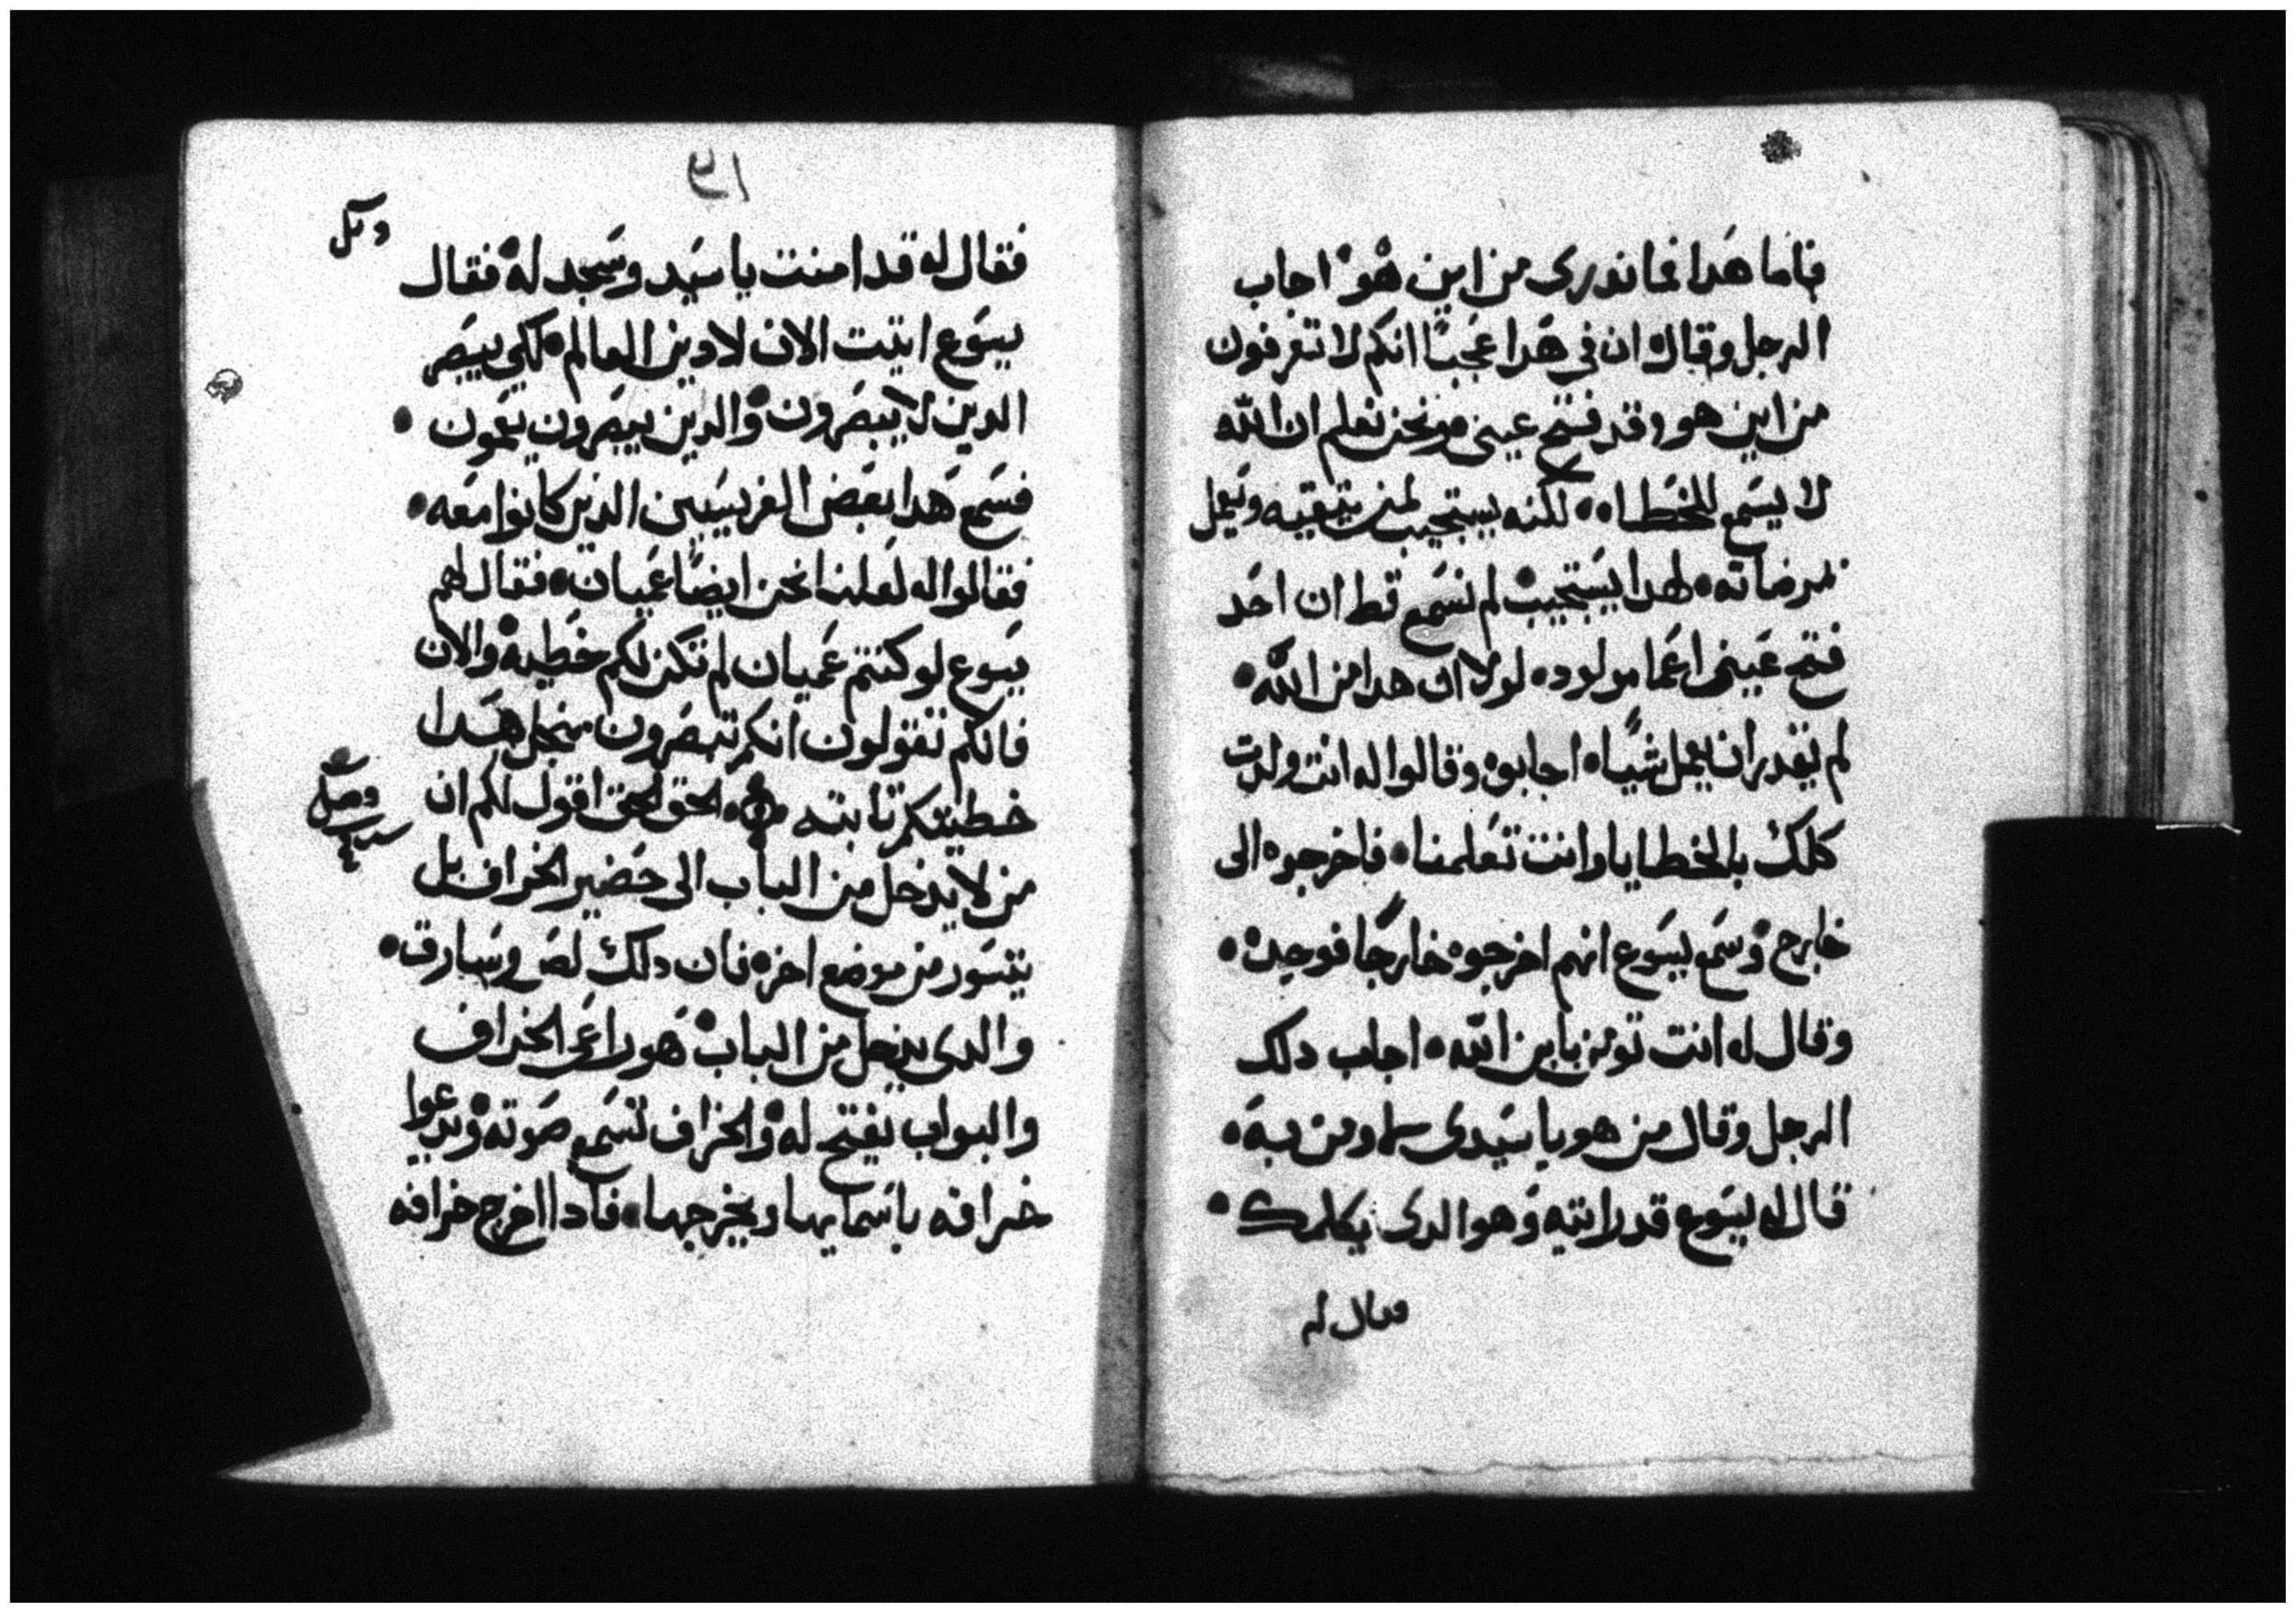 فاما هدا فما ندرى من اين هو اجاب
الرجل وقال ان فى هدا عجبًا انكم لا تعرفون
من اين هو وقد فتح عينى ونحن نعلم ان الله
لا يسمع للخطاه لكنه يستجيب لمن يتقيه ويعمل
مرضاته لهدا يستجيب لم نسمع قط ان احد
فتح عينى اعما مولود لولا ان هدا من الله
لم يقدر ان يعمل شيًا اجابوه وقالوا له انت ولدت
كلك بالخطايا وانت تعلمنا فاخرجوه الى
خارج وسمع يسوع انهم اخرجوه خارجًا فوجده
وقال له انت تومن بابن الله اجاب دلك
الرجل وقال من هو يا سيدى لاومن به
قال له يسوع قد راتيه وهو الدى يكلمك
فقال له
فقال له قد امنت يا سيد وسجد له فقال
يسوع اتيت الان لادين العالم لكي يبصر
الدين لا يبصرون والدين يبصرون يعمون
فسمع هدا بعض الفريسيين الدين كانوا معه
فقالوا له لعلنا نحن ايضًا عميان فقال لهم
يسوع لو كنتم عميان لم تكن لكم خطيه والان
فانكم تقولون انكم تبصرون من اجل هدا
خطيتكم تابته الحق الحق اقول لكم ان
من لا يدخل من الباب الى حضير الخراف بل
يتسور من موضع اخر فان دلك لص وسارق
والدى يدخل من الباب هو راعى الخراف
والبواب يفتح له والخراف تسمع صوته ويدعوا
خرافه باسمايها ويخرجها فادا اخرج خرافه